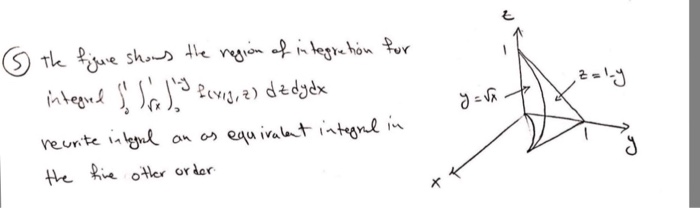 ⑤ the figure shows the region of integration for
integral ∫₀¹ ∫√x¹ ∫₀¹⁻ʸ f(x,y,z) dzdydx
rewrite integral an as equivalent integral in
the five other order.
z
1
z = 1-y
y = √x
1
y
x